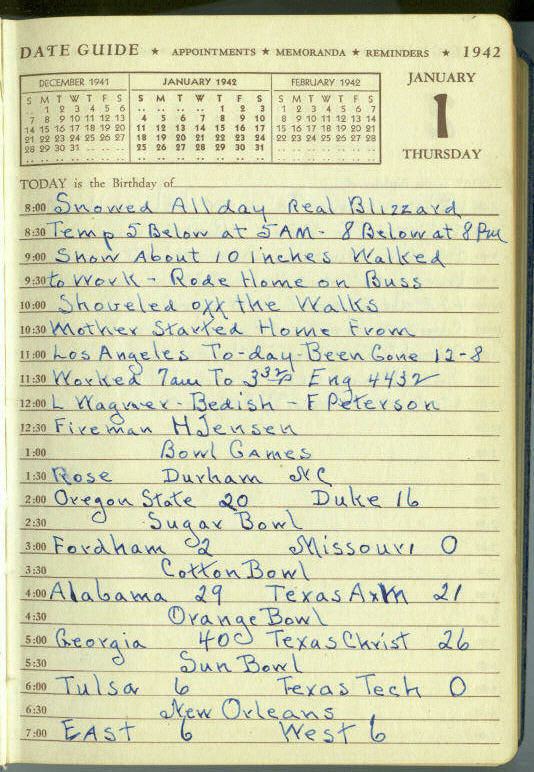 DATE GUIDE ★ APPOINTMENTS ★ MEMORANDA ★ REMINDERS ★ 1942
DECEMBER 1941
S M T W T F S
.. 1 2 3 4 5 6
7 8 9 10 11 12 13
14 15 16 17 18 19 20
21 22 23 24 25 26 27
28 29 30 31 .. .. ..
.. .. .. .. .. .. ..
JANUARY 1942
S M T W T F S
.. .. .. .. 1 2 3
4 5 6 7 8 9 10
11 12 13 14 15 16 17
18 19 20 21 22 23 24
25 26 27 28 29 30 31
.. .. .. .. .. .. ..
FEBRUARY 1942
S M T W T F S
1 2 3 4 5 6 7
8 9 10 11 12 13 14
15 16 17 18 19 20 21
22 23 24 25 26 27 28
.. .. .. .. .. .. ..
JANUARY
1
THURSDAY
TODAY is the Birthday of
8:00 Snowed All day Real Blizzard
8:30 Temp 5 Below at 5 AM - 8 Below at 8 PM
9:00 Snow About 10 inches Walked
9:30 to Work - Rode Home on Buss
10:00 Shoveled off the Walks
10:30 Mother Started Home From
11:00 Los Angeles To-day-Been Gone 12-8
11:30 Worked 7am To 3 32 P Eng 4432
12:00 L Wagner - Bedish - F Peterson
12:30 Fireman H Jensen
1:00 Bowl Games
1:30 Rose Durham NC
2:00 Oregon State 20 Duke 16
2:30 Sugar Bowl
3:00 Fordham 2 Missouri 0
3:30 Cotton Bowl
4:00 Alabama 29 Texas A&M 21
4:30 Orange Bowl
5:00 Georgia 40 Texas Christ 26
5:30 Sun Bowl
6:00 Tulsa 6 Texas Tech 0
6:30 New Orleans
7:00 East 6 West 6